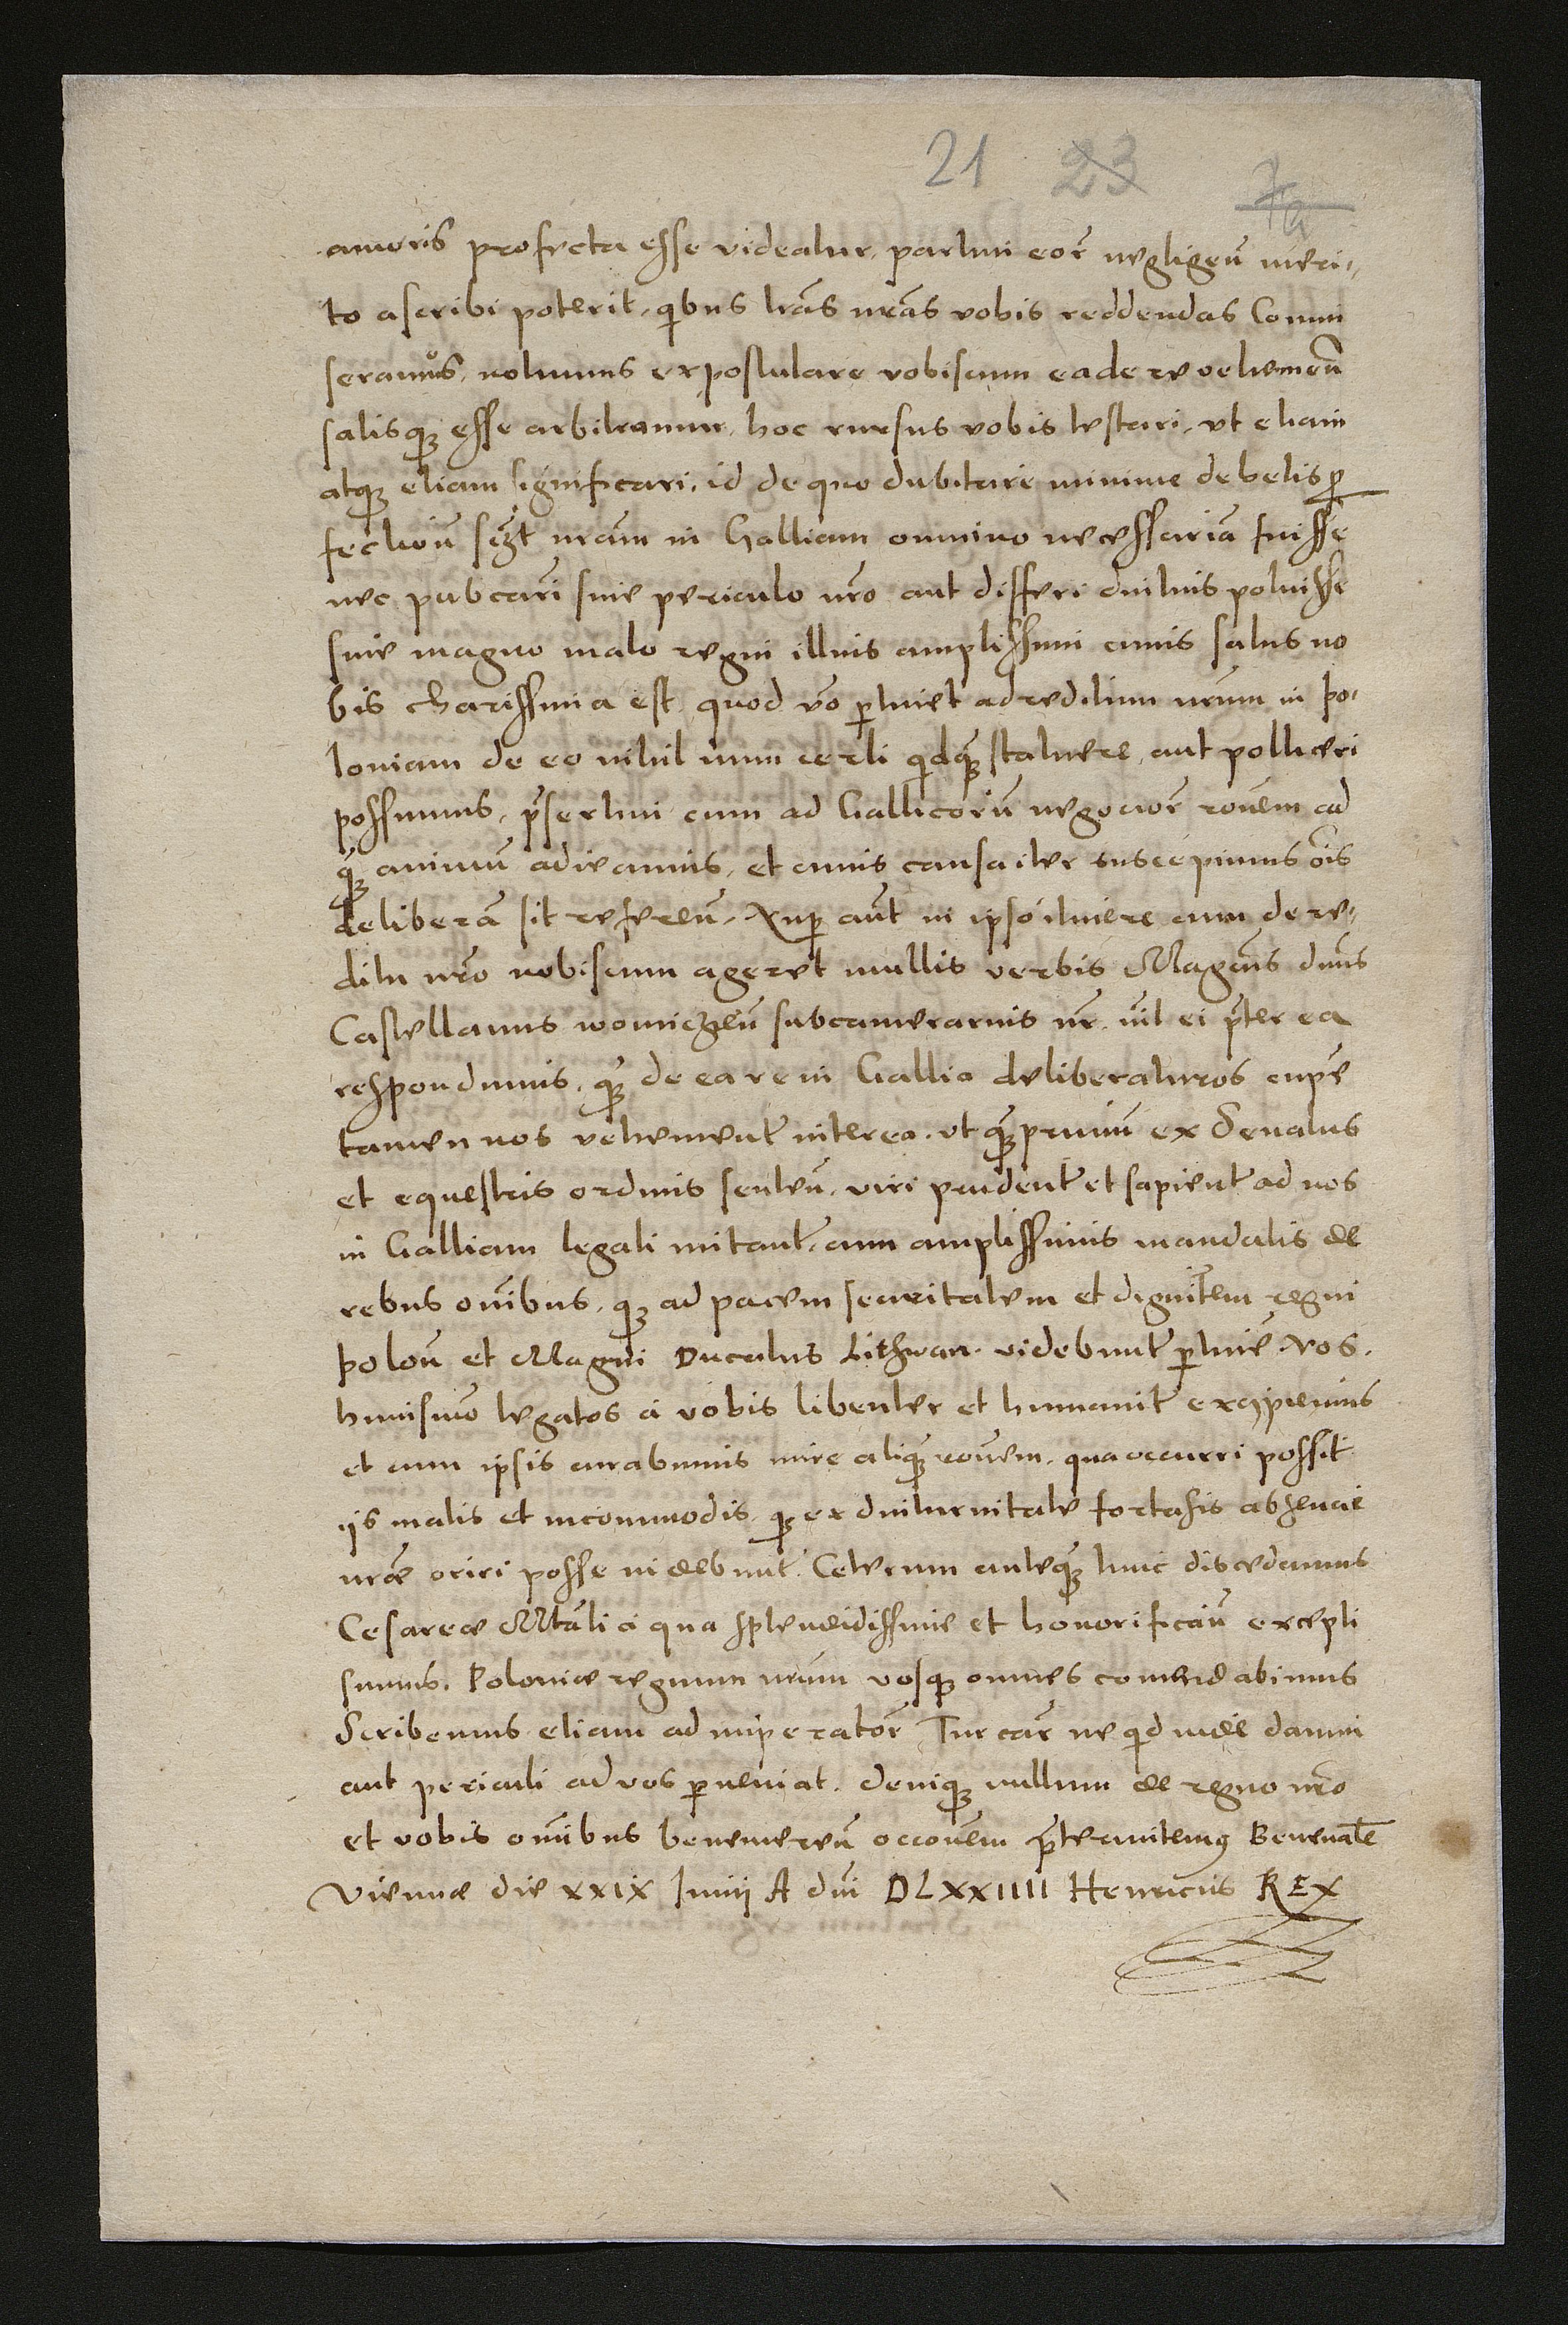 21 23
amoris profecta esse videatur, partim eor̃ negligeñ meri-
to ascribi poterit, qibus lr̃as nr̃as vobis reddendas Commi
seramus, nolumus expostulare vobiscum ea de re vehemeñ
satisqȝ esse arbitramur, hoc rursus vobis testari, vt etiam
atqȝ etiam significari, id de quo dubitare minime debetis ꝓ
fectioñ sczt nr̃am in Galliam omnino necessariã fuisse
nec publicari sine periculo nr̃o aut differi diutius potuisse
sine magno malo regni illius amplissimi cuius salus no
bis charissima est, quod ṽo ꝑtinet ad reditum nr̃um in Po-
loniam de eo nihil num certi qidqȝ statuere, aut polliceri
possumus, p̃sertim cum ad Gallicorũ negocior̃ rõnem ad
qȝ animũ adieramus, et cuius causa iter suscepimus õis
deliberã sit refereñ. Nuꝑ aũt in ipso itinere cum de re-
ditu nr̃o nobiscum ageret multis verbis Magcũs dñus
Castellanus woiniczeñ subcamerarius nr̃, nil ei p̃ter ea
respondimus, qȝ de ea re in Gallia deliberaturos cupe
tamen nos vehementer̃ interea, vt qȝprimũ ex Senatus
et equestris ordinis senteñ, viri prudent̃ et sapient̃ ad nos
in Galliam legati mitant̃, cum amplissimis mandatis de
rebus om̃ibus, qȝ ad pacem securitatem et dignit̃em regni
Poloñ et Magni Ducatus Lithwan. videbunt̃ ꝑtine. Nos
huiusmõ legatos a vobis libenter et humanit̃ excipiemus
et cum ipsis curabimus inire aliqȝ rõnem, qua occurri possit
ijs malis et incommodis, qȝ ex diuturnitate fortasis absenciẽ
nr̃æ oriri posse videbunt̃. Ceterum anteqȝ hinc discedamus
Cesareæ Mtãti a qua splendidissime et honorificañ excepti
sumus, Poloniæ regnum nr̃um vosqȝ omnes comẽdabimus
Scribemus etiam ad imperator̃ Turcar̃ ne qid inde damni
aut periculi ad vos ꝑueniat. deniqȝ nullum de regno nr̃o
et vobis om̃ibus benemereñ occõnem p̃termitemꝯ Beneualẽ
Viennæ die XXIX Junij A dñi DLXXIIII Henricus REX